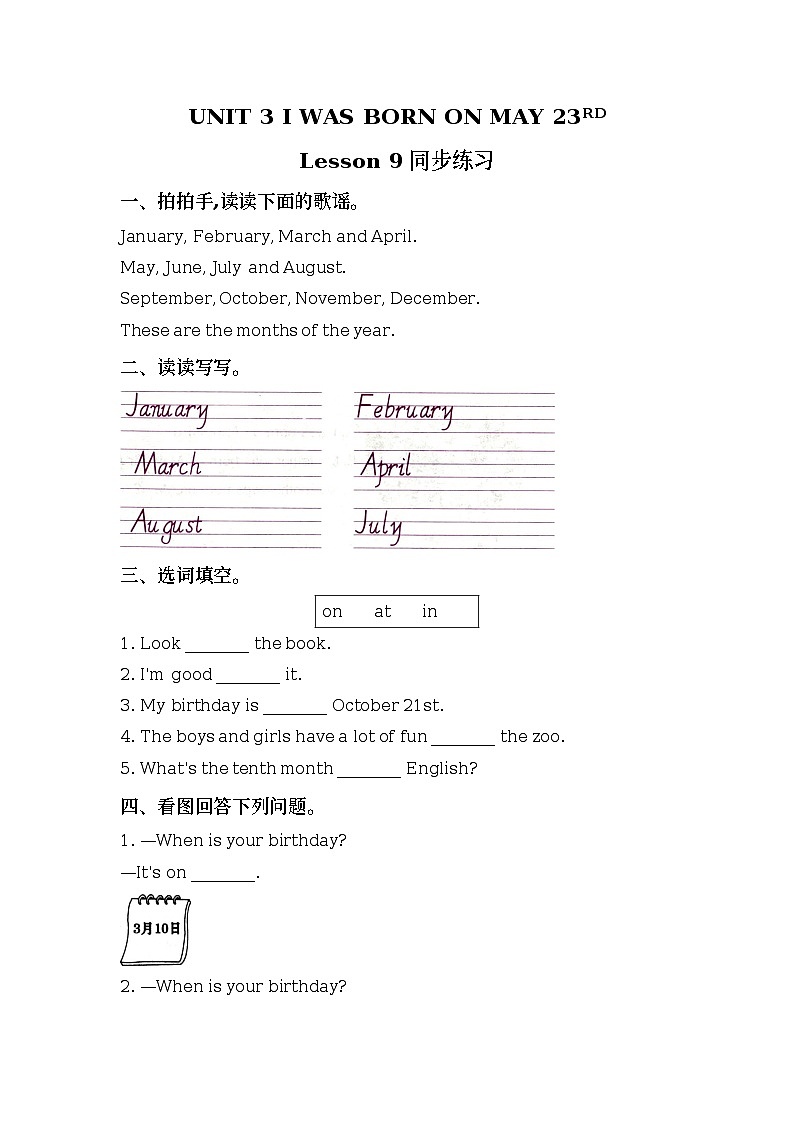 UNIT 3 I WAS BORN ON MAY 23RD
Lesson 9 同步练习
一、拍拍手,读读下面的歌谣。
January, February, March and April.
May, June, July and August.
September, October, November, December.
These are the months of the year.
二、读读写写。
January February
March April
August July
三、选词填空。
on at in
1. Look _______ the book.
2. I'm good _______ it.
3. My birthday is _______ October 21st.
4. The boys and girls have a lot of fun _______ the zoo.
5. What's the tenth month _______ English?
四、看图回答下列问题。
1. —When is your birthday?
—It's on _______.
3月10日
2. —When is your birthday?